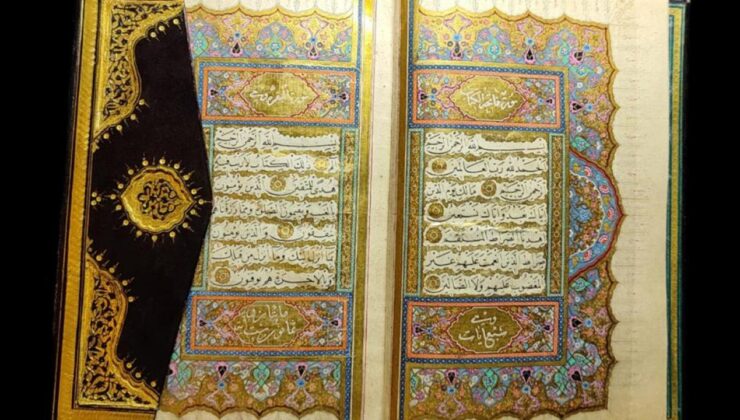 سورة فاتحة الكتاب
بسم الله الرحمن الرحيم
الحمد لله رب العالمين
الرحمن الرحيم مالك يوم الدين
اياك نعبد واياك نستعين
اهدنا الصراط المستقيم
صراط الذين انعمت عليهم غير
المغضوب عليهم ولا الضالين
وهي
سبع ايات
سورة البقرة
بسم الله الرحمن الرحيم
الم ذلك الكتاب لا ريب فيه
هدى للمتقين الذين يؤمنون
بالغيب ويقيمون الصلوة ومما
رزقناهم ينفقون والذين يؤمنون
بما انزل اليك وما انزل من قبلك
وبالاخرة هم يوقنون